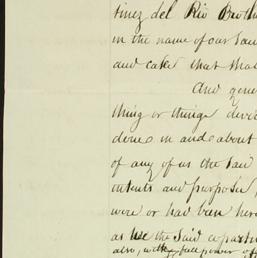 tinez del Rio Broth
in the name of our sa
and
And gene
thing or things devi
done in and about
of any of us the sa
intents and purposes,
were or had been here
as we the said copartn
also, with full power of